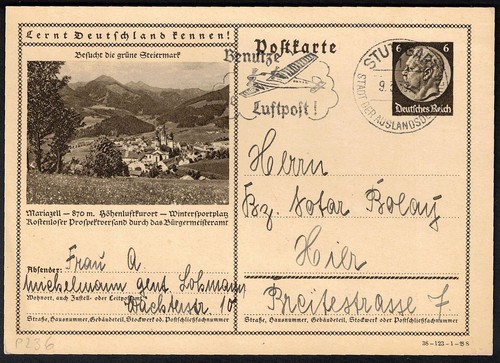 Lernt Deutschland kennen!
Besucht die grüne Steiermark
Postkarte
Benutze
Luftpost!
STUTTGART
9.
STADT DER AUSLANDSD
6 6
Deutsches Reich
Mariazell — 870 m. Höhenluftkurort — Wintersportplatz
Kostenloser Prospektversand durch das Bürgermeisteramt
Herrn
Bz. Notar Bolay
Hier
Breitestrasse 7
Absender: Frau A
gent. Lohmann
Wohnort, auch Zustell- oder Leitpostamt
Wächterstr. 10
Straße, Hausnummer, Gebäudeteil, Stockwerk od. Postschließfachnummer
Straße, Hausnummer, Gebäudeteil, Stockwerk oder Postschließfachnummer
38-123-1-B8
P236